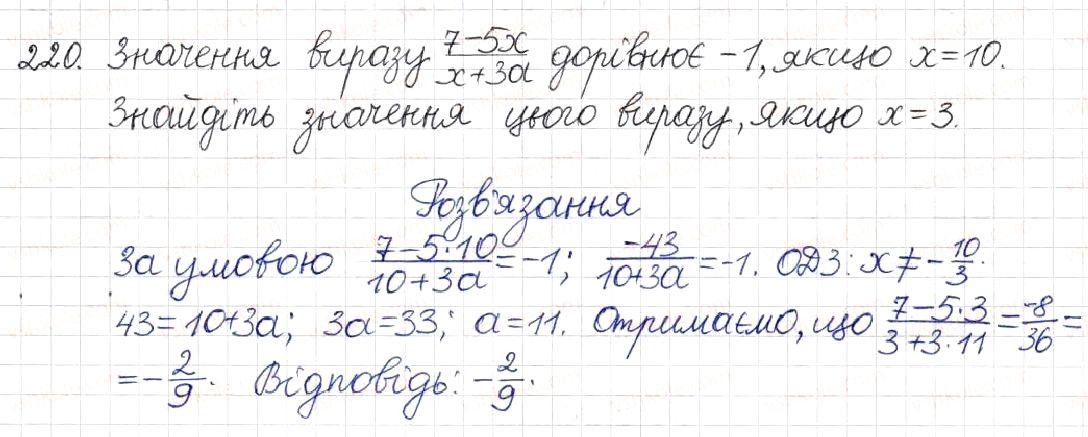 220. Значення виразу (7-5x)/(x+3a) дорівнює -1, якщо x=10.
Знайдіть значення цього виразу, якщо x=3.
Розв'язання
За умовою (7-5·10)/(10+3a)=-1; (-43)/(10+3a)=-1. ОДЗ: x≠-10/3.
43=10+3a; 3a=33; a=11. Отримаємо, що (7-5·3)/(3+3·11)=-8/36=
=-2/9. Відповідь: -2/9.